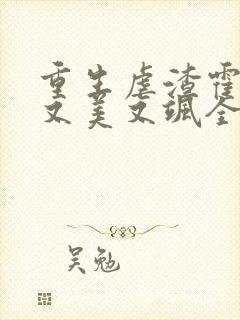 重生虐渣霍
又美又飒全
吴勉